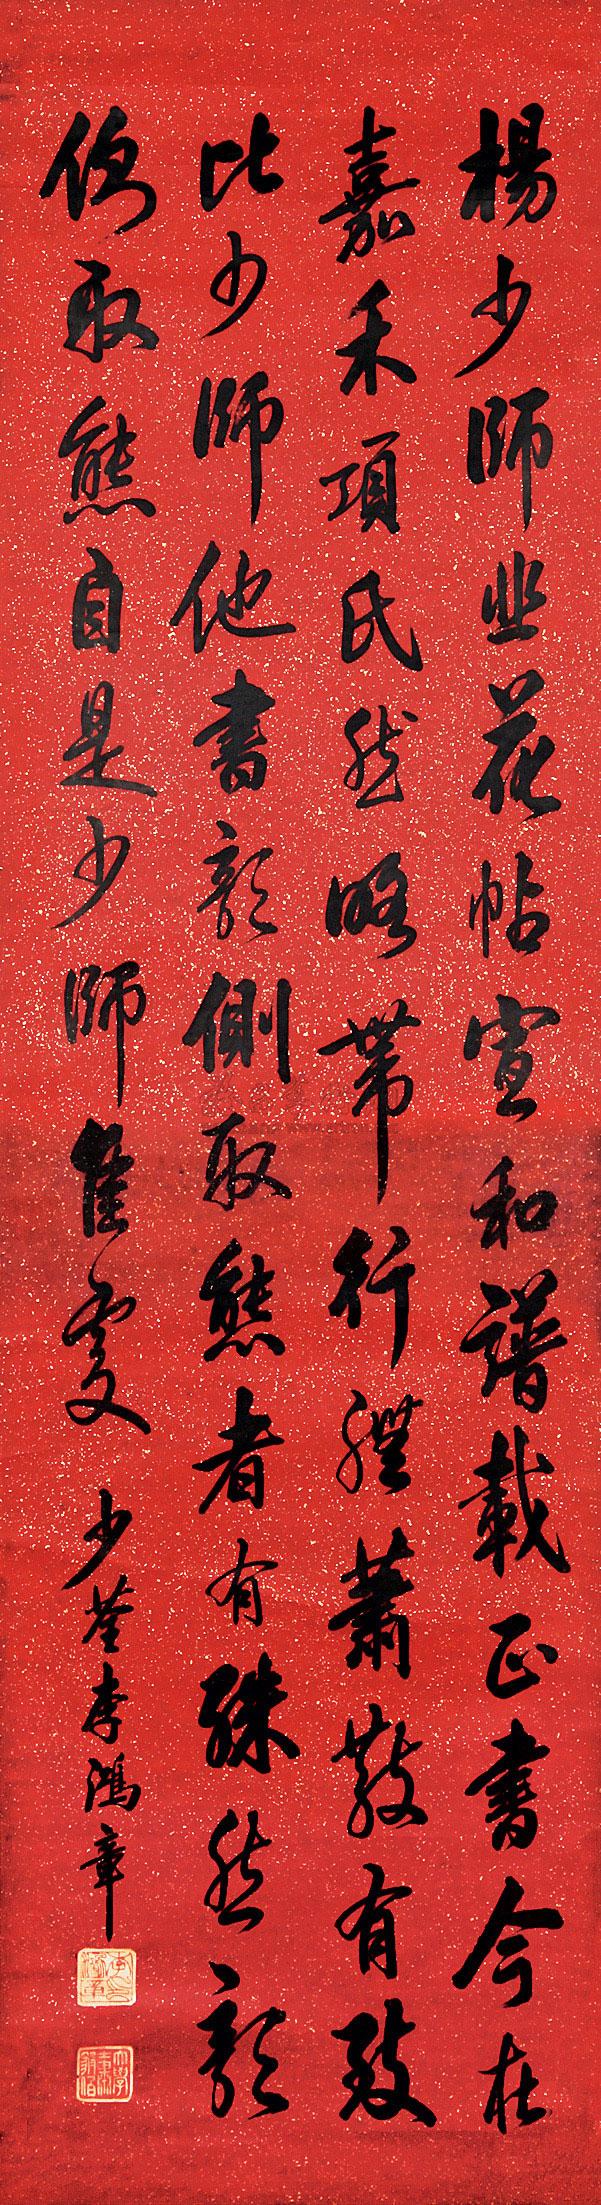 楊少師韭花帖宣和譜載正書今在
嘉禾項氏然略帶行體蕭散有致
比少師他書欹側取態者有殊然欹
側取態自是少師佳處
少荃李鴻章